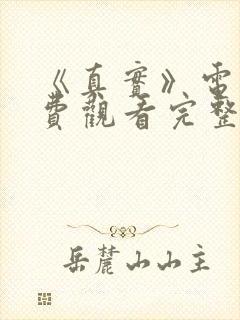 《真實》電
費觀看完整
岳麓山山主